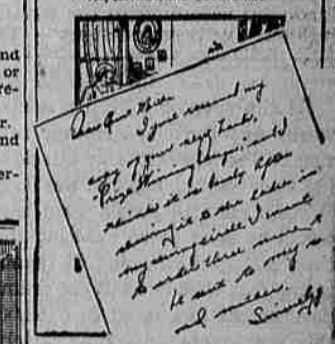 nd
or
re-
r.
nd
er-
Dear Aunt Ellen
I just received my
copy of your new book,
"Prize Winning Designs," and I
think it is lovely. After
showing it to the ladies in
my sewing circle I want
to order three more to
be sent to my
and mother.
Sincerely